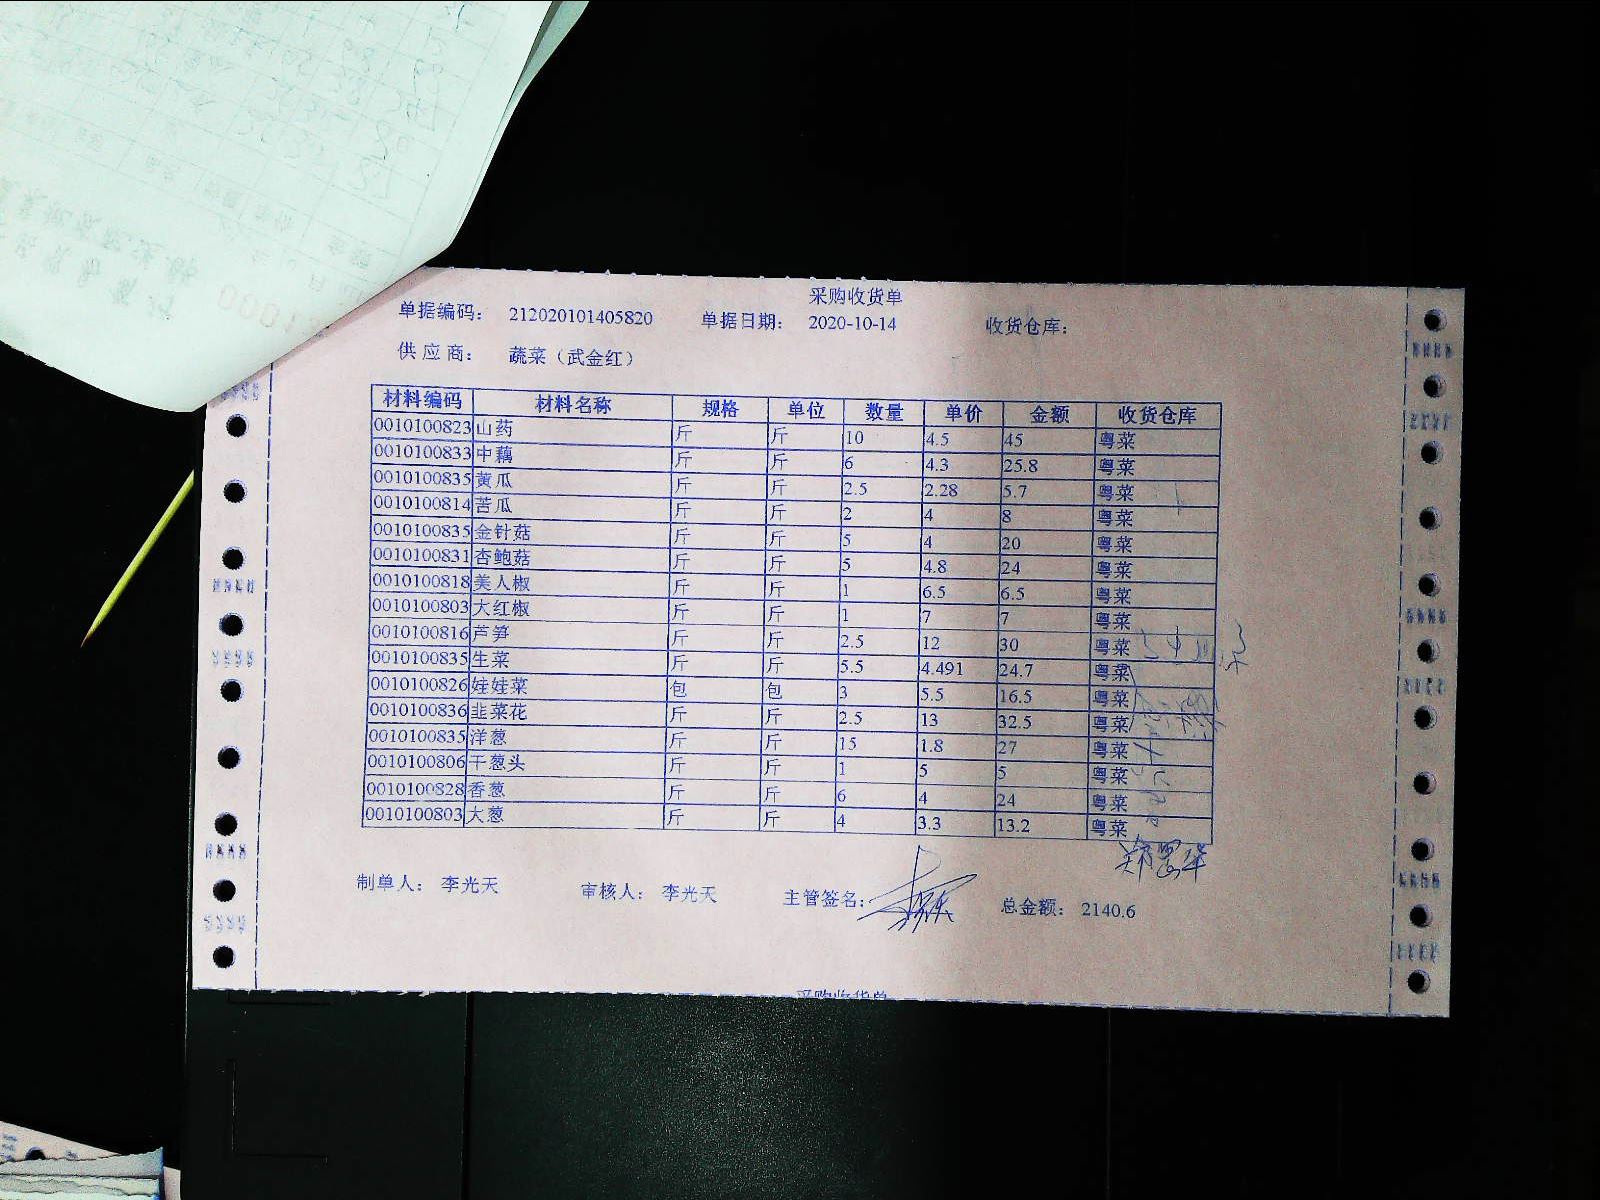 采购收货单
单据编码: 212020101405820 单据日期: 2020-10-14 收货仓库:
供应商: 蔬菜（武金红）
材料编码 材料名称 规格 单位 数量 单价 金额 收货仓库
0010100823 山药 斤 斤 10 4.5 45 粤菜
0010100833 中藕 斤 斤 6 4.3 25.8 粤菜
0010100835 黄瓜 斤 斤 2.5 2.28 5.7 粤菜
0010100814 苦瓜 斤 斤 2 4 8 粤菜
0010100835 金针菇 斤 斤 5 4 20 粤菜
0010100831 杏鲍菇 斤 斤 5 4.8 24 粤菜
0010100818 美人椒 斤 斤 1 6.5 6.5 粤菜
0010100803 大红椒 斤 斤 1 7 7 粤菜
0010100816 芦笋 斤 斤 2.5 12 30 粤菜
0010100835 生菜 斤 斤 5.5 4.491 24.7 粤菜
0010100826 娃娃菜 包 包 3 5.5 16.5 粤菜
0010100836 韭菜花 斤 斤 2.5 13 32.5 粤菜
0010100835 洋葱 斤 斤 15 1.8 27 粤菜
0010100806 干葱头 斤 斤 1 5 5 粤菜
0010100828 香葱 斤 斤 6 4 24 粤菜
0010100803 大葱 斤 斤 4 3.3 13.2 粤菜
制单人: 李光天 审核人: 李光天 主管签名: 总金额: 2140.6
采购收货单